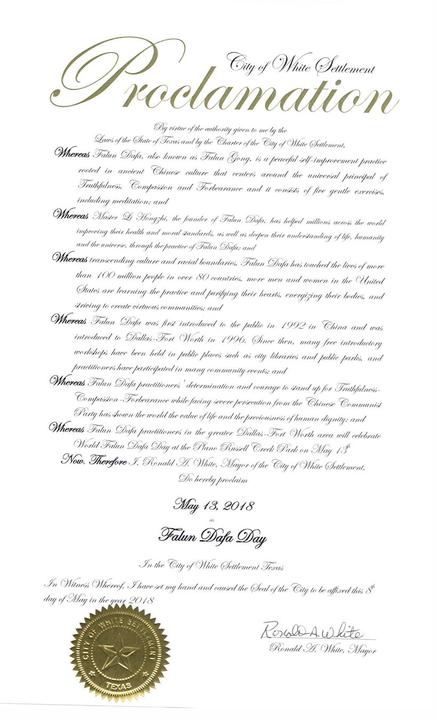 City of White Settlement
Proclamation
By virtue of the authority given to me by the
Laws of the State of Texas and by the Charter of the City of White Settlement,
Whereas Falun Dafa, also known as Falun Gong, is a peaceful self-improvement practice
rooted in ancient Chinese culture that centers around the universal principal of
Truthfulness, Compassion and Forbearance and it consists of five gentle exercises,
including meditation; and
Whereas Master Li Hongzhi, the founder of Falun Dafa, has helped millions across the world
improving their health and moral standards, as well as deepen their understanding of life, humanity
and the universe, through the practice of Falun Dafa; and
Whereas transcending culture and racial boundaries, Falun Dafa has touched the lives of more
than 100 million people in over 80 countries, more men and women in the United
States are learning the practice and purifying their hearts, energizing their bodies, and
striving to create virtuous communities; and
Whereas Falun Dafa was first introduced to the public in 1992 in China and was
introduced to Dallas-Fort Worth in 1996. Since then, many free introductory
workshops have been held in public places such as city libraries and public parks, and
practitioners have participated in many community events; and
Whereas Falun Dafa practitioners' determination and courage to stand up for Truthfulness-
Compassion-Forbearance while facing severe persecution from the Chinese Communist
Party has shown the world the value of life and the preciousness of human dignity; and
Whereas Falun Dafa practitioners in the greater Dallas-Fort Worth area will celebrate
World Falun Dafa Day at the Plano Russell Creek Park on May 13th
Now, Therefore I, Ronald A. White, Mayor of the City of White Settlement,
Do hereby proclaim
May 13, 2018
as
Falun Dafa Day
In the City of White Settlement Texas
In Witness Whereof, I have set my hand and caused the Seal of the City to be affixed this 8th
day of May in the year 2018
Ronald A White
Ronald A. White, Mayor
CITY OF WHITE SETTLEMENT
TEXAS